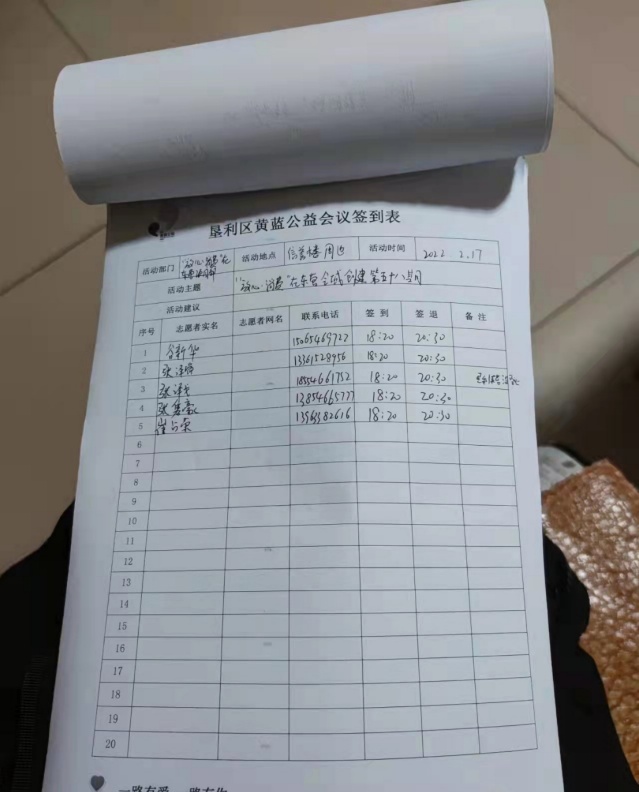 垦利区黄蓝公益会议签到表
活动部门 "放心消费"在 活动地点 信誉楼周边 活动时间 2022 2.17
活动主题 "放心消费"在东营全域创建第五十八期
活动建议
序号 志愿者实名 志愿者网名 联系电话 签到 签退 备注
1 谷新华 15065469727 18:20 20:30
2 张 13361528956 18:20 20:30
3 张 18554661752 18:20 20:30
4 张 13854665777 18:20 20:30
5 崔 荣 13563382616 18:20 20:30
6
7
8
9
10
11
12
13
14
15
16
17
18
19
20
一路有爱 一路有你